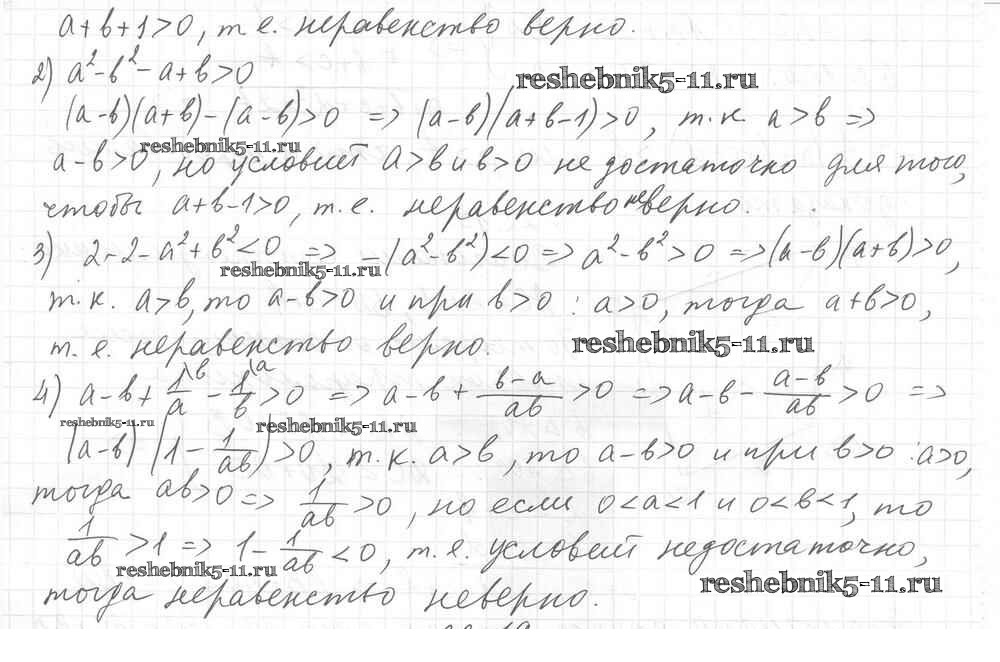 a+b+1>0, т.е. неравенство верно.
2) a²-b²-a+b>0
reshebnik5-11.ru
(a-b)(a+b)-(a-b)>0 => (a-b)(a+b-1)>0, т.к. a>b =>
reshebnik5-11.ru
a-b>0, но условий a>b и b>0 не достаточно для того,
чтобы a+b-1>0, т.е. неравенство неверно.
3) 2-2-a²+b²<0 => -(a²-b²)<0 => a²-b²>0 => (a-b)(a+b)>0,
reshebnik5-11.ru
т.к. a>b, то a-b>0 и при b>0 : a>0, тогда a+b>0,
т.е. неравенство верно.
reshebnik5-11.ru
4) a-b+1\b/a - 1\a/b>0 => a-b+(b-a)/ab>0 => a-b-(a-b)/ab>0 =>
reshebnik5-11.ru
reshebnik5-11.ru
(a-b)(1-1/ab)>0, т.к. a>b, то a-b>0 и при b>0 : a>0,
тогда ab>0 => 1/ab>0, но если 0<a<1 и 0<b<1, то
1/ab>1 => 1-1/ab<0, т.е. условий недостаточно,
reshebnik5-11.ru
reshebnik5-11.ru
тогда неравенство неверно.